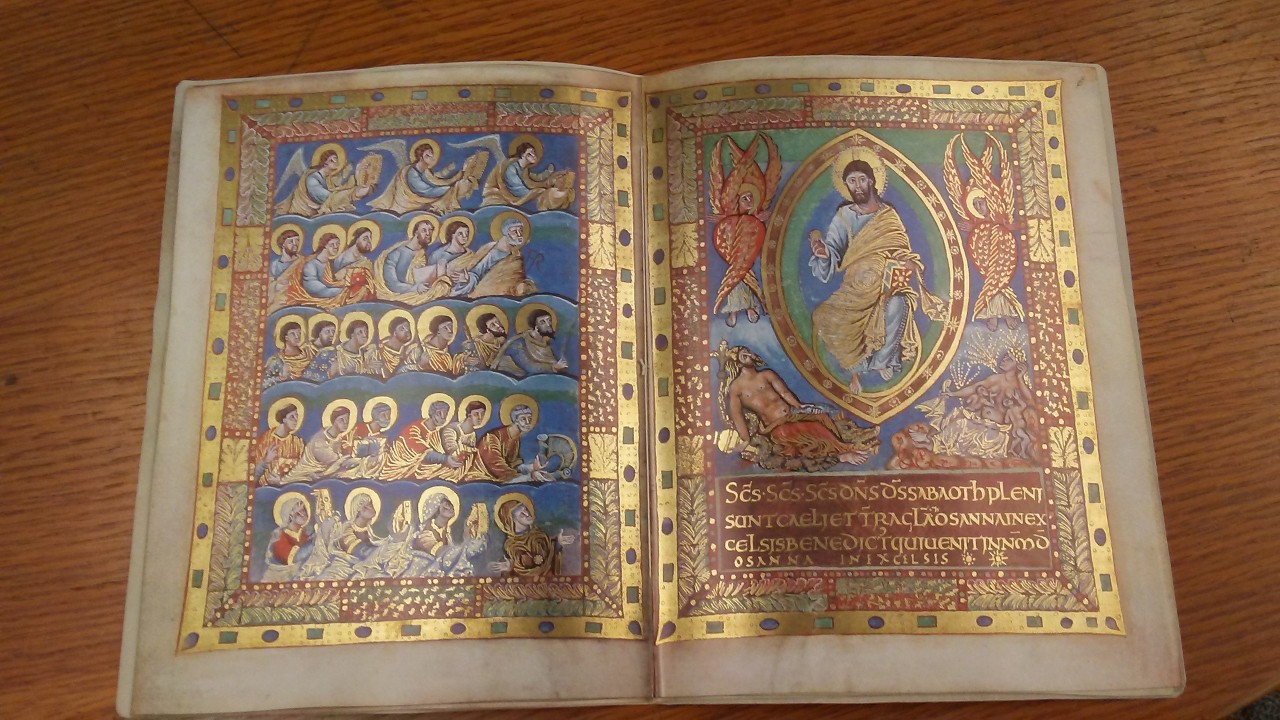 Sc̄s·Sc̄s·Sc̄s dn̄s ds̄ sabaoth pleni
sunt caeli et tr̄a glā osanna in ex
celsis benedict qui uenit in nm̄ d
osanna in excelsis